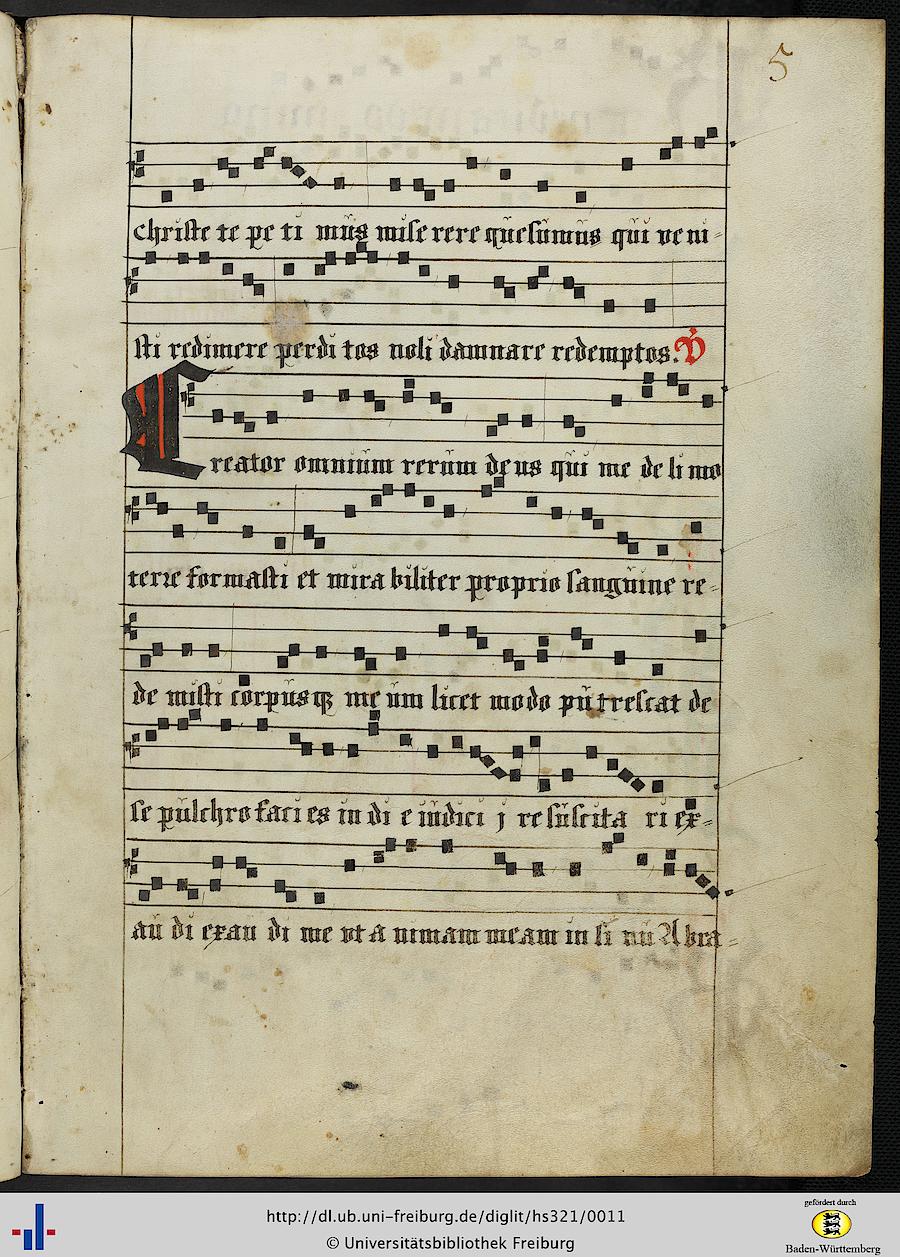 5
christe te pe ti mus mise rere quesumus qui ve ni-
sti redimere perdi tos noli damnare redemptos. V
Creator omnium rerum deus qui me de li mo
terre formasti et mira biliter proprio sanguine re-
de misti corpusq me um licet modo putrescat de
se pulchro faci es in di e iudici j re suscita ri ex-
au di exau di me vt a nimam meam in si nu Abra-
gefördert durch
http://dl.ub.uni-freiburg.de/diglit/hs321/0011
© Universitätsbibliothek Freiburg
Baden-Württemberg